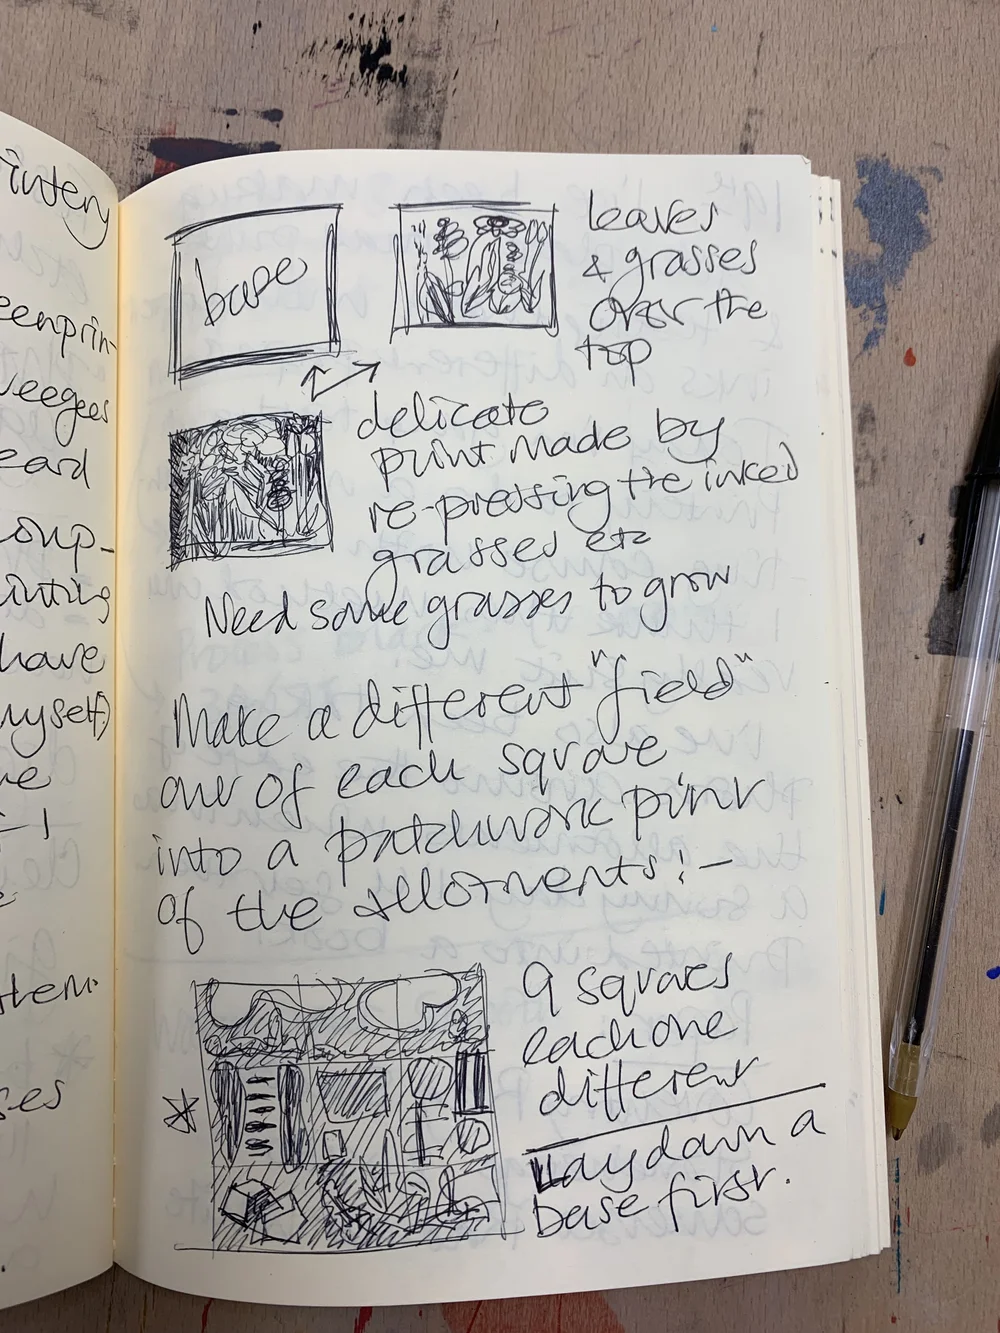 intery
eenprin-
weegees
eard
oup-
inting
have
myself)
ne
stem.
ses
base
leaves
& grasses
over the
top
delicate
print made by
re-pressing the inked
grasses etc
Need some grasses to grow
Make a different "field"
out of each square
into a patchwork print
of the allotments! -
9 squares
each one
different
Lay down a
base first.